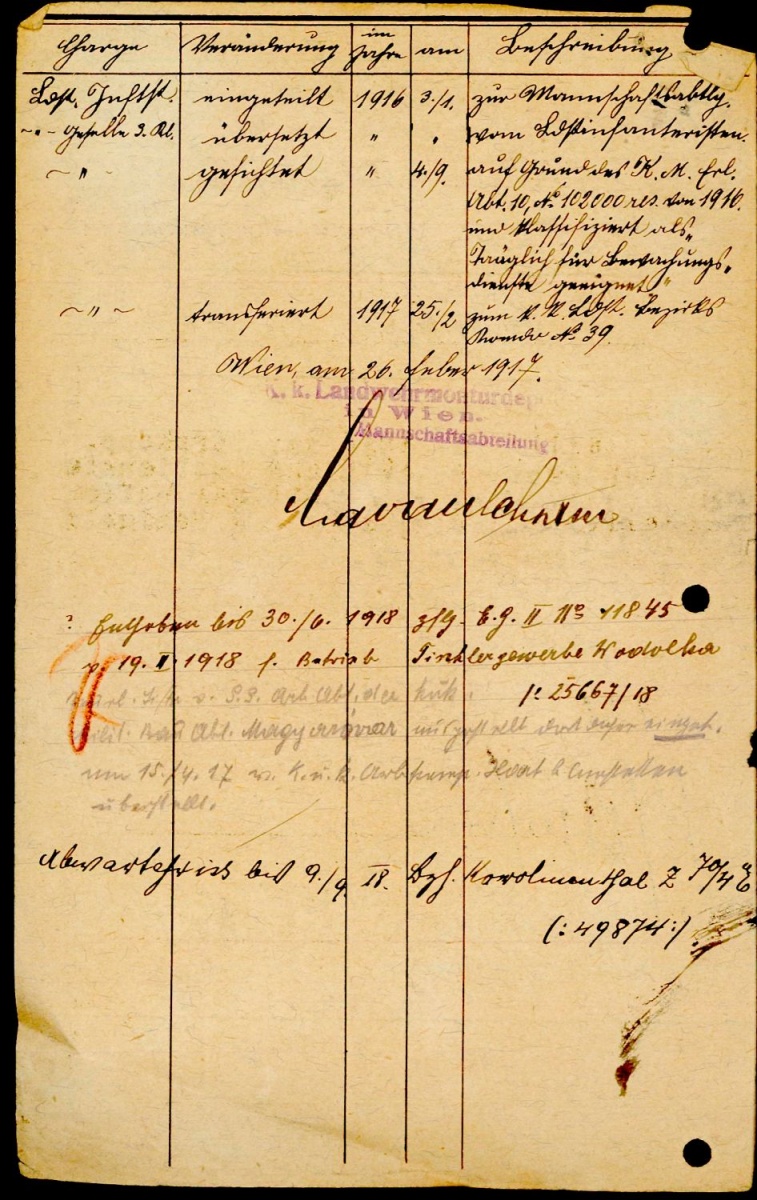 Charge Veränderung im Jahre am Beschreibung
Ldst. Inftst. eingeteilt 1916 3./1. zur Mannschaftsabtlg.
~ " ~ Geselle 3. Kl. übersetzt " " vom Ldstinfanteristen.
~ " ~ gesichtet " 4./9. auf Grund des K. M. Erl.
Abt. 10, No 102000 res. von 1916.
und klassifiziert als
"Tauglich für Bewachungs-
dienste geeignet"
~ " ~ transferiert 1917 25./2 zum k. k. Ldst. Bezirks
Komdo No 39.
Wien, am 26. Feber 1917.
K. k. Landwehrmonturdepot
in Wien.
Mannschaftsabteilung
Enthoben bis 30./6. 1918 zfg. E.G. II No 11845
v. 19. II. 1918 f. Betrieb Tischlergewerbe Wodolka
/: 25667/18
Abt. der k.u.k.
Milit. Bau Abt. Magyaróvár
am 15./4. 17 v. K. u. k.
überstellt.
bis 9./9. 18. Bzh. Karolinenthal Z 70/4
(: 49874 :)